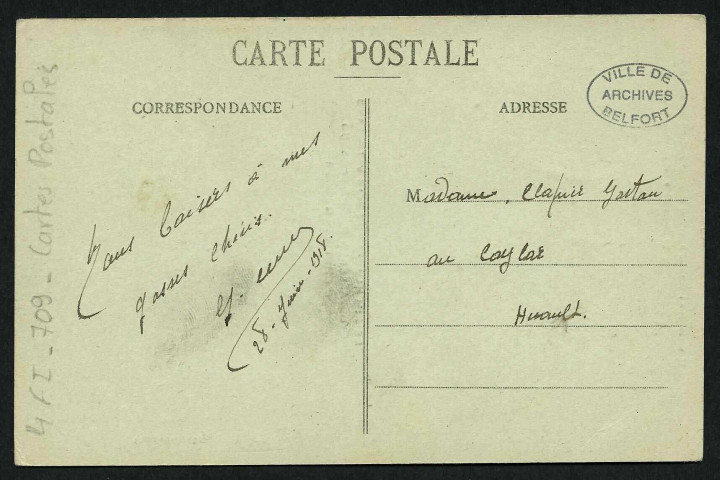 CARTE POSTALE
CORRESPONDANCE
baisers à mes
gosses chéris.
28 - Juin - 1918.
ADRESSE
Madame Clapier Gaston
au Caylar
Hérault.
VILLE DE
ARCHIVES
BELFORT
4 FI - 709 - Cartes Postales